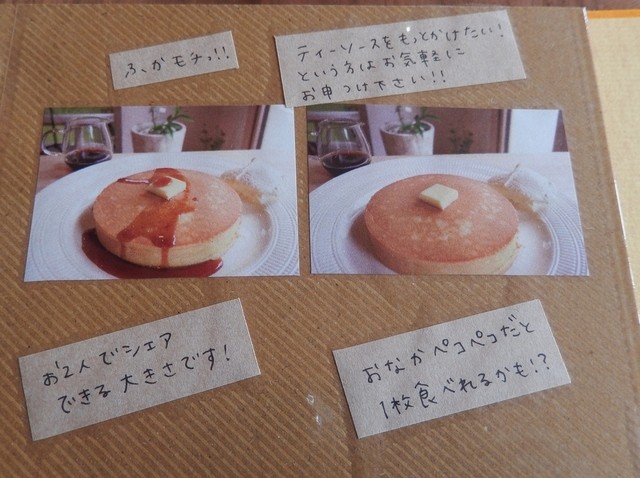 ふ、かモチっ!!
ティーソースをもっとかけたい!
という方はお気軽に
お申つけ下さい!!
お2人でシェア
できる大きさです!
おなかペコペコだと
1枚食べれるかも!?